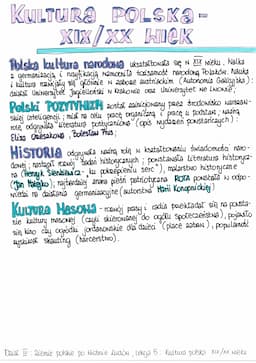 KULTURA POLSKA -
XIX/XX WIEK
Polska kultura narodowa ukształtowała się w XIX wieku. Walka
z germanizacją i rusyfikacją wzmocniła tożsamość narodową Polaków. Nauka
i kultura rozwijały się głównie w zaborze austriackim (Autonomia Galicyjska):
działał Uniwersytet Jagielloński w Krakowie oraz Uniwersytet we Lwowie;
Polski POZYTYWIZM został zainicjowany przez środowisko warszaw-
skiej inteligencji; miał na celu pracę organiczną i pracę u podstaw; ważną
rolę odgrywała "literatura postyczniowa" (opis wydarzeń powstańczych):
Eliza Orzeszkowa, Bolesław Prus;
HISTORIA odgrywała ważną rolę w kształtowaniu świadomości naro-
dowej; nastąpił rozwój badań historycznych; powstawała literatura historycz-
na (Henryk Sienkiewicz - "ku pokrzepieniu serc"), malarstwo historyczne
(Jan Matejko); najbardziej znana pieśń patriotyczna ROTA powstała w odpo-
wiedzi na działania germanizacyjne (autorstwa Marii Konopnickiej)
KULTURA MASOWA - rozwój prasy i radia przekładał się na powsta-
nie kultury masowej (czyli skierowanej do ogółu społeczeństwa), pojawiło
się kino czy ogródki jordanowskie dla dzieci (place zabaw), popularność
zyskiwał skauting (harcerstwo).
Dział III: Ziemie polskie po Wiośnie Ludów, lekcja 5: Kultura polska XIX/XX wieku